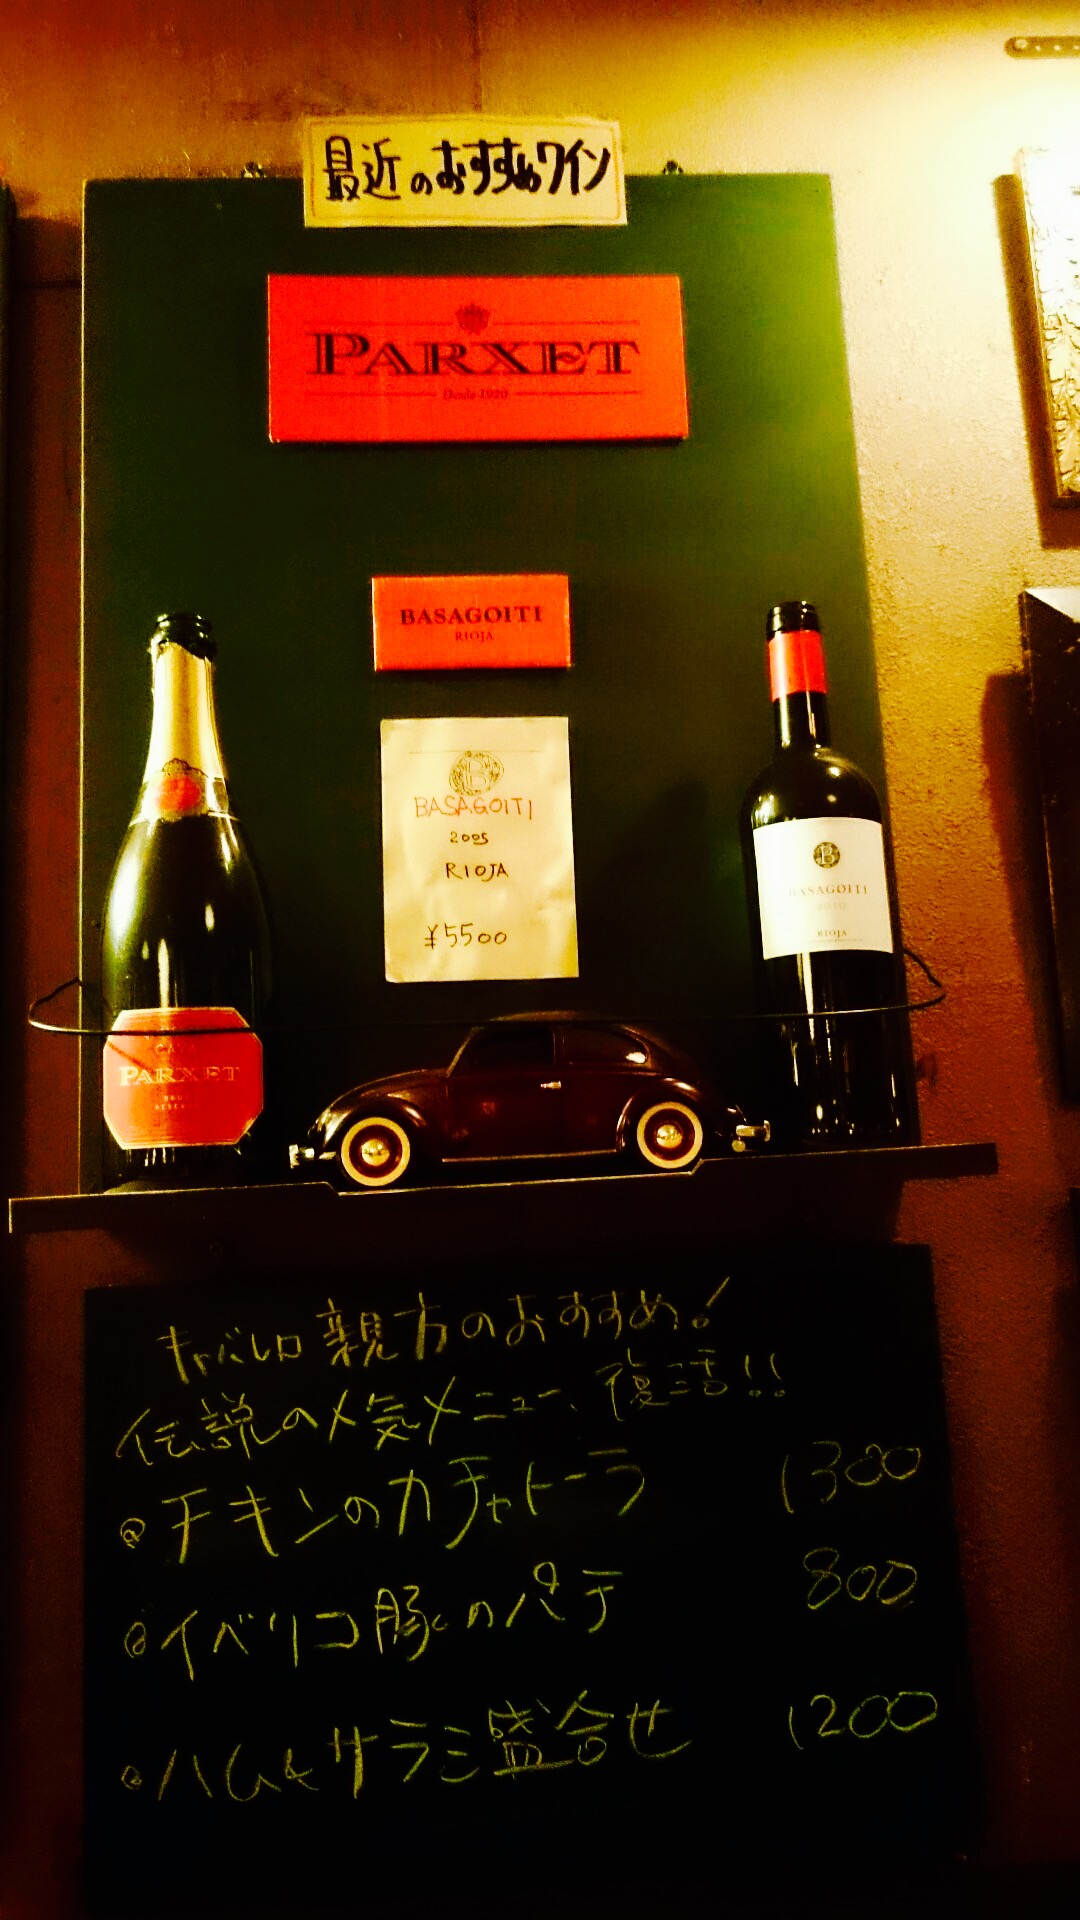 最近のおすすめワイン
PARXET
Desde 1920
BASAGOITI
RIOJA
B
BASAGOITI
2005
RIOJA
¥5500
B
BASAGOITI
2010
RIOJA
CAVA
PARXET
BRUT
RESERVA
キャバレロ 親方のおすすめ!
伝説の人気メニュー、復活!!
チキンのカチャトーラ 1300
イベリコ豚のパテ 800
ハム&サラミ盛合せ 1200